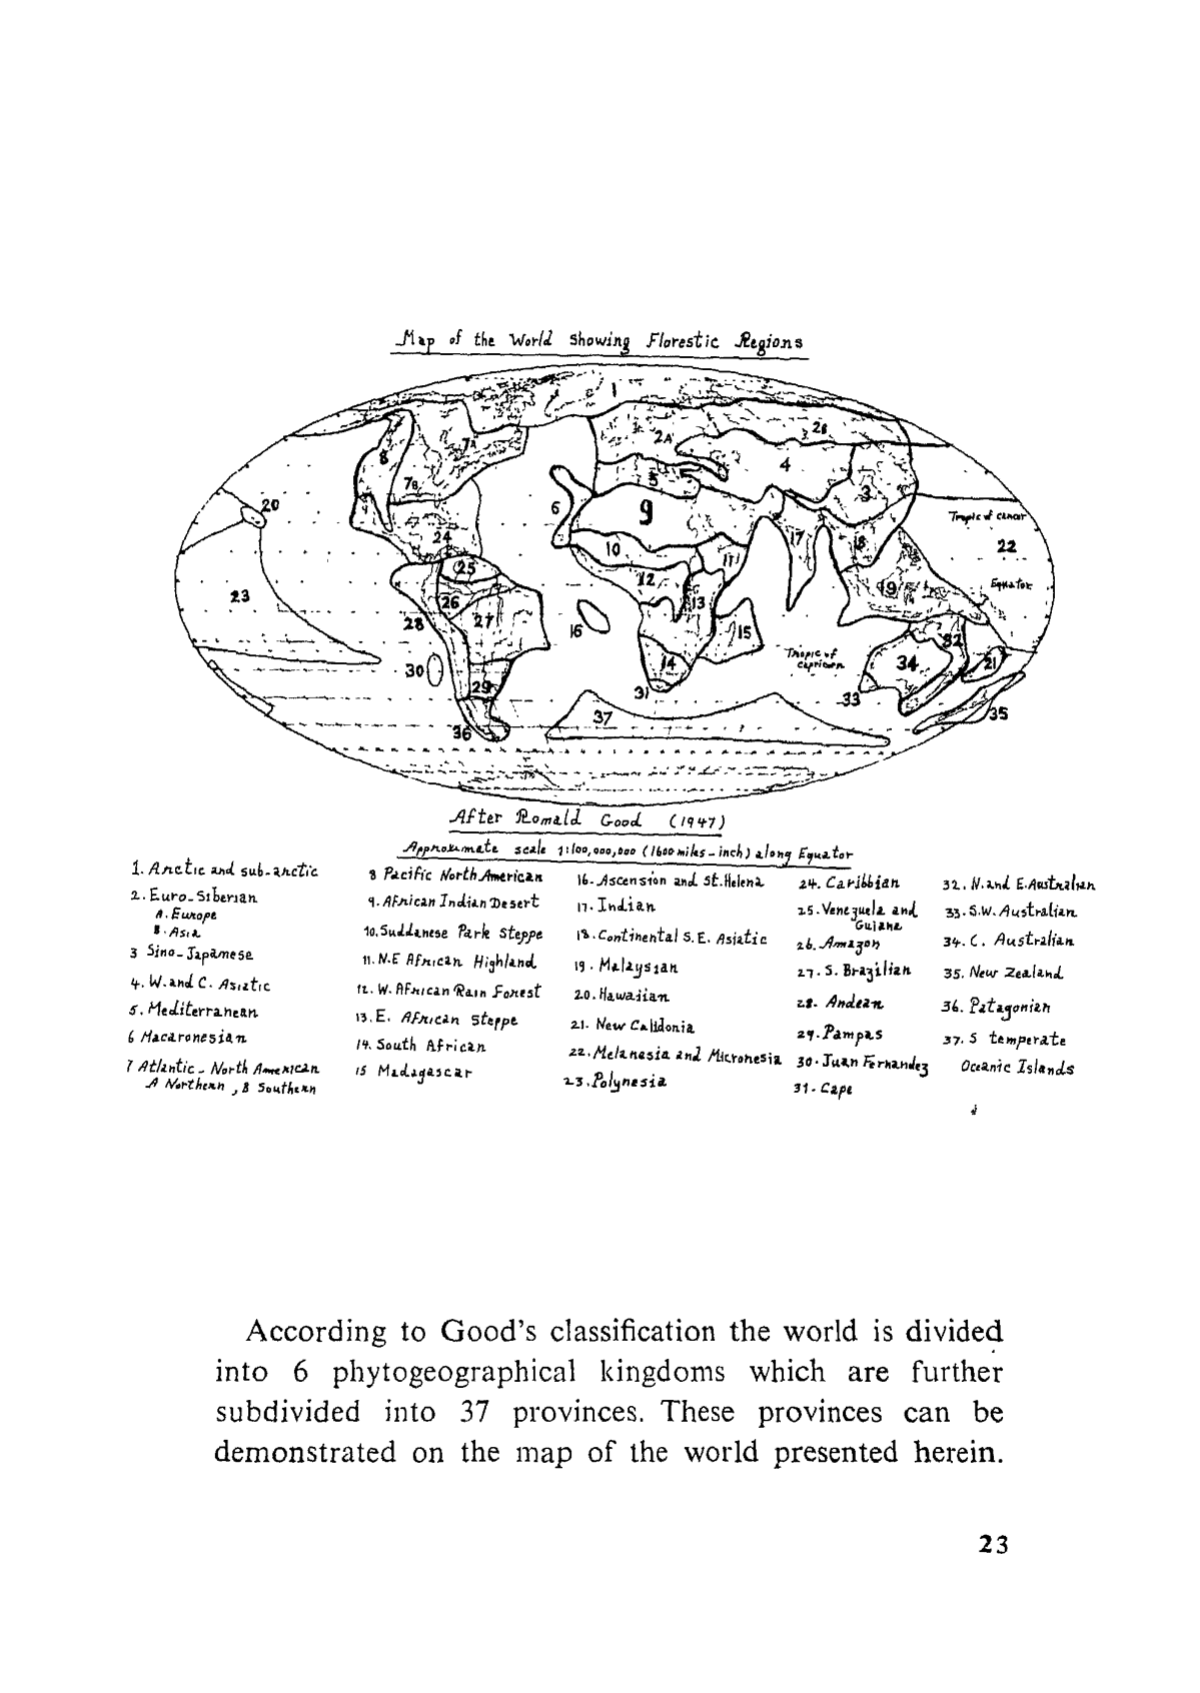 Map of the World Showing Florestic Regions
1
2A
2B
7A
8
4
5
7B
3
9
20
6
9
Tropic of cancer
24
10
17
18
22
25
11
12
19
Equator
23
26
13
28
27
16
15
32
Tropic of
capricorn
30
14
34
21
29
31
33
37
35
36
After Romald Good (1947)
Approximate scale 1:100,000,000 (1600 miles-inch) along Equator
1. Arctic and sub-arctic
2. Euro-Siberian
A. Europe
B. Asia
3 Sino-Japanese
4. W. and C. Asiatic
5. Mediterranean
6 Macaronesian
7 Atlantic - North American
A Northern, B Southern
8 Pacific North American
9. African Indian Desert
10. Suddanese Park Steppe
11. N.E African Highland
12. W. African Rain Forest
13. E. African Steppe
14. South African
15 Madagascar
16. Ascension and St. Helena
17. Indian
18. Continental S.E. Asiatic
19. Malaysian
20. Hawaiian
21. New Calidonia
22. Melanesia and Micronesia
23. Polynesia
24. Caribbian
25. Venezuela and
Guiane
26. Amazon
27. S. Brazilian
28. Andean
29. Pampas
30. Juan Fernandez
31. Cape
32. N. and E. Australian
33. S.W. Australian
34. C. Australian
35. New Zealand
36. Patagonian
37. S temperate
Oceanic Islands
According to Good's classification the world is divided
into 6 phytogeographical kingdoms which are further
subdivided into 37 provinces. These provinces can be
demonstrated on the map of the world presented herein.
23